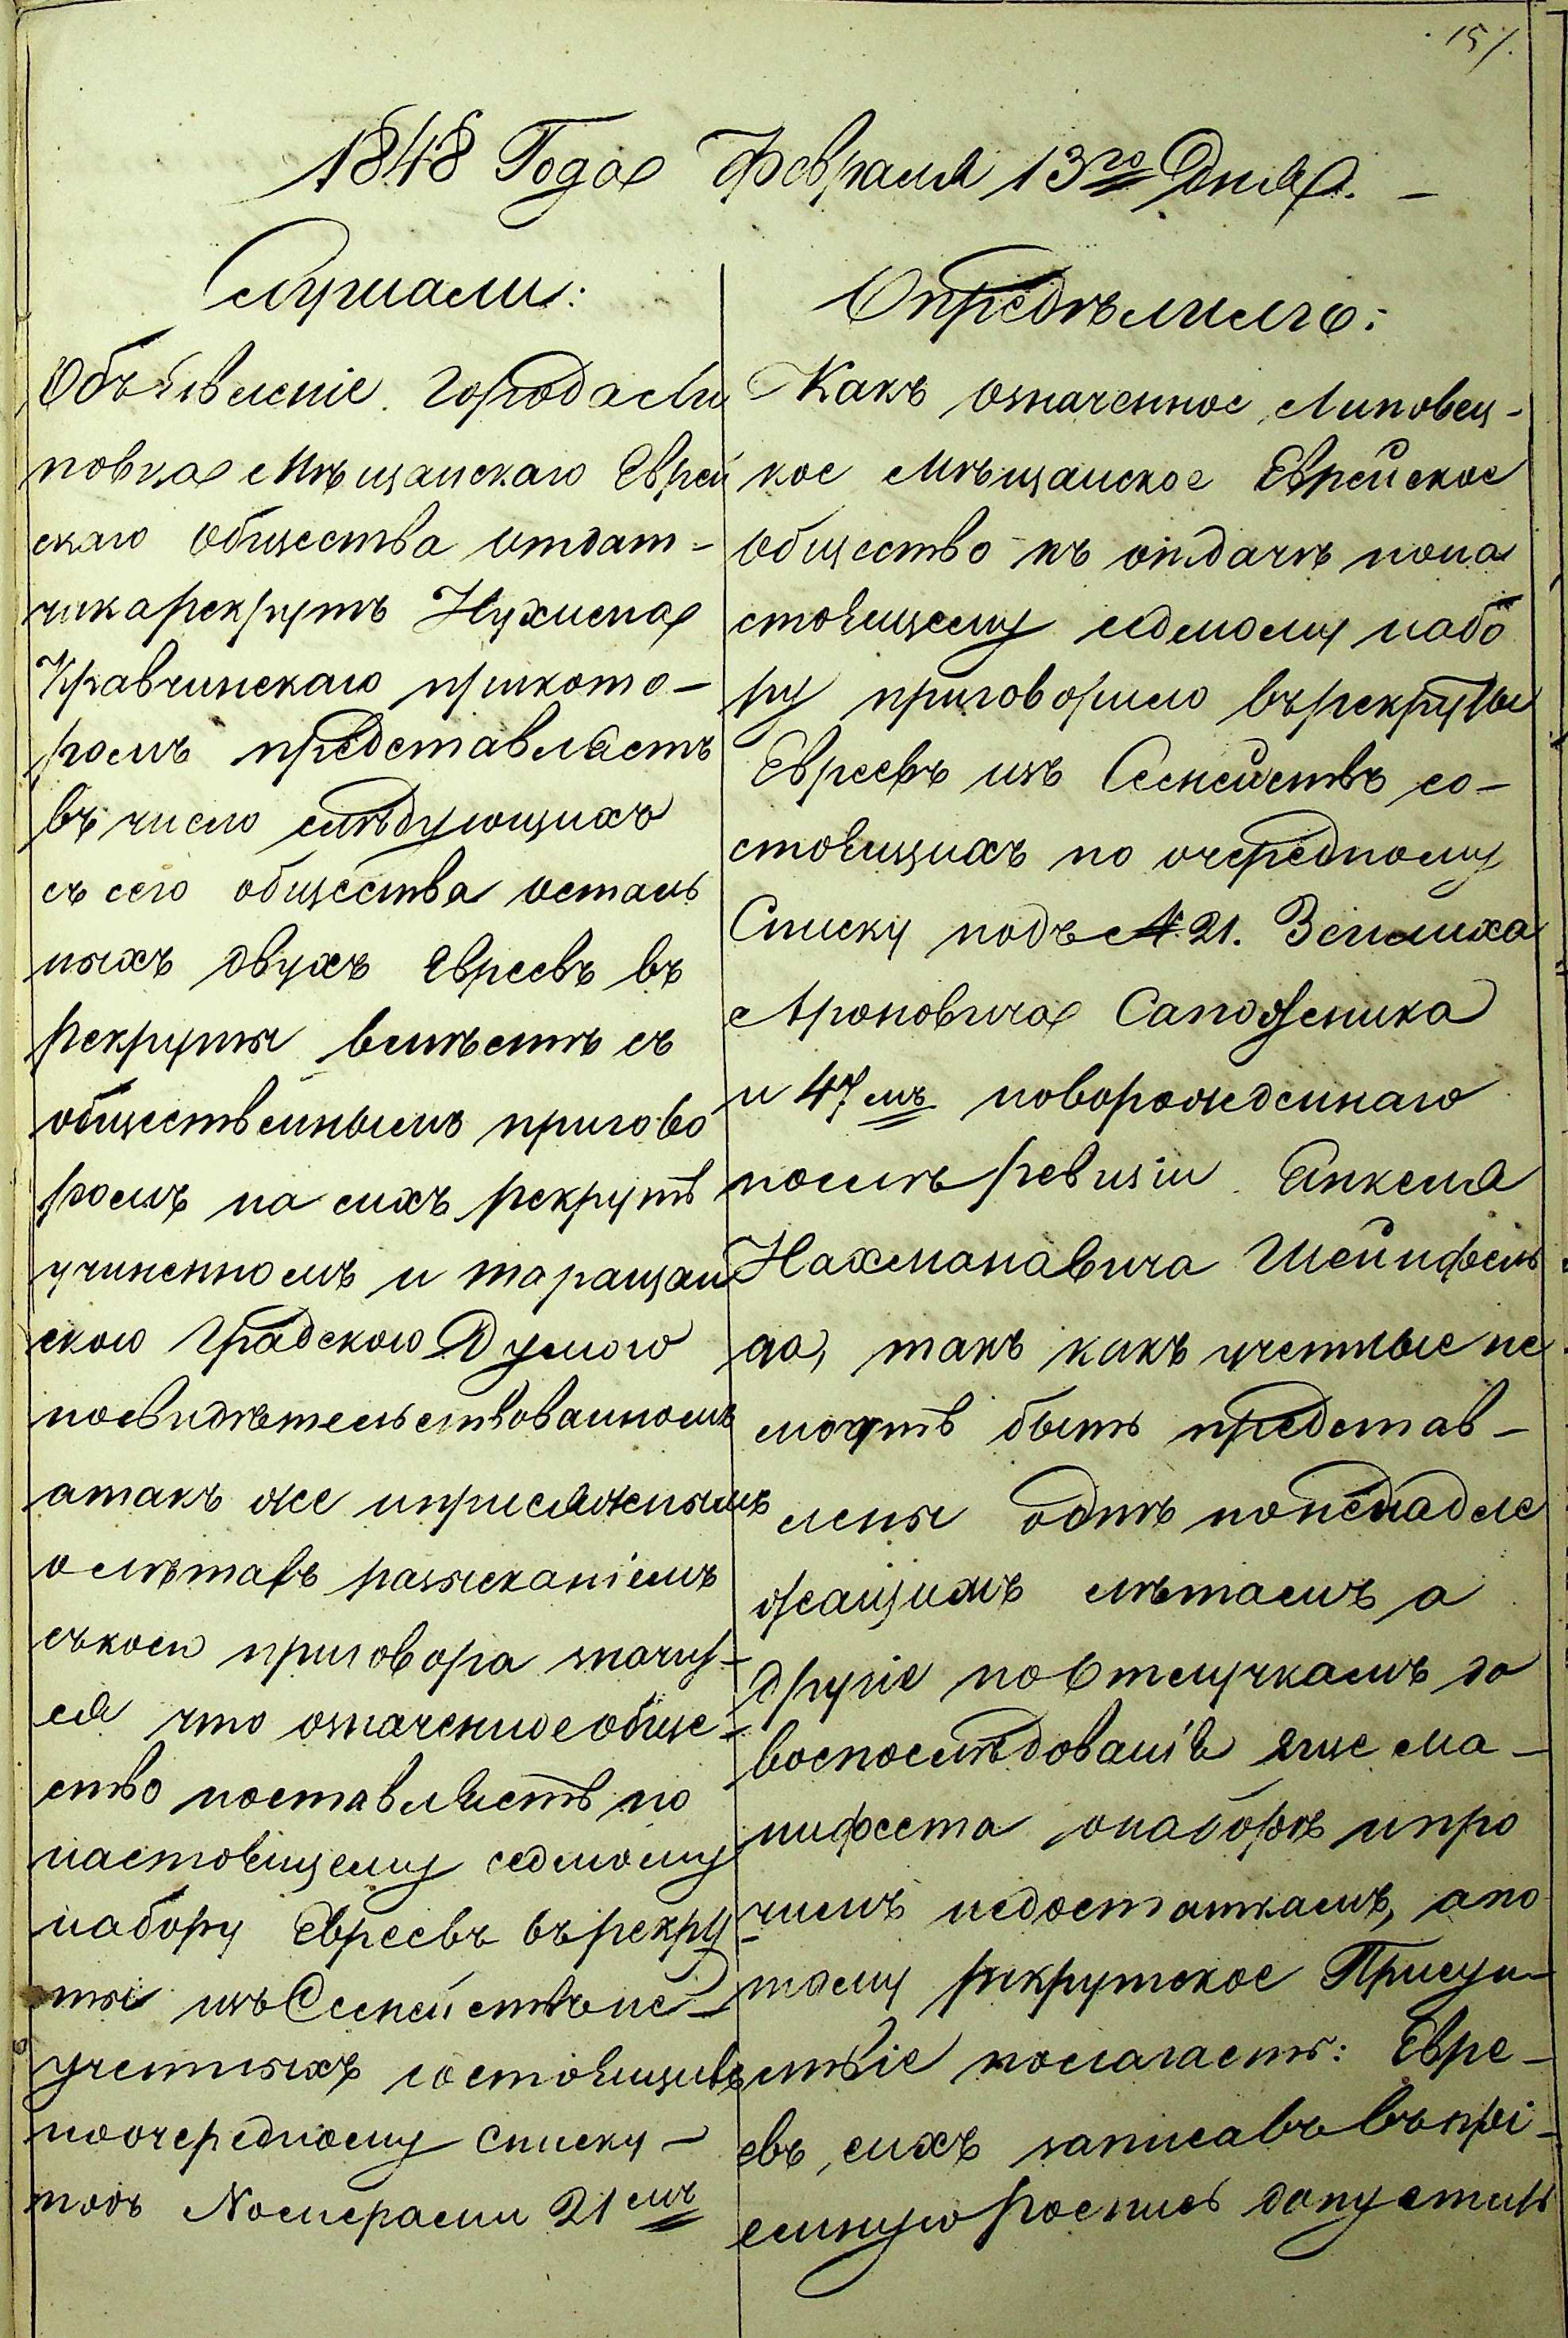 157.
1848 Года Февраля 13го Дня. —
Слушали:
Объявленіе города Ли
повца Мѣщанскаго Еврей
скаго общества отдат-
чика рекрутъ Нухима
Кравчинскаго при кото-
ромъ представляетъ
въ число слѣдующихъ
съ сего общества осталь
ныхъ двухъ Евреевъ въ
рекруты вмѣстѣ съ
общественнымъ приго во
ромъ на сихъ рекрутъ
учиненномъ и таращан
скою Градскою Думою
посвидѣтельствованномъ
а такъ же и присяжнымъ
о лѣтахъ разысканіемъ
съ коего приговора значит-
ся что означенное обще-
ство поставляетъ по
настоящему седмому
набору Евреевъ въ рекру
ты изъ Семействъ не-
учетныхъ состоящихъ
по очередному списку -
подъ Номерами 21мъ
Опредѣлило:
Какъ означенное Липовец-
кое Мѣщанское Еврейское
общество къ отдачѣ по на
стоящему седмому набо
ру приговорило въ рекруты
Евреевъ изъ Семействъ со-
стоящихъ по очередному
Списку подъ № 21. Зейлиха
Ароновича Сапожника
и 47мъ новорожденнаго
послѣ ревизіи Янкеля
Нахмановича Шейнфель
да, такъ какъ учетные не
могутъ быть представ-
лены однѣ по ненадле
жащимъ лѣтамъ а
другіе по отлучкамъ до
воспослѣдованія еще ма-
нифеста о наборѣ и про
чимъ недостаткамъ, а по
тому рекрутское Присут-
ствіе полагаетъ: Евре-
евъ сихъ записавъ въ прі-
емную роспись допустить